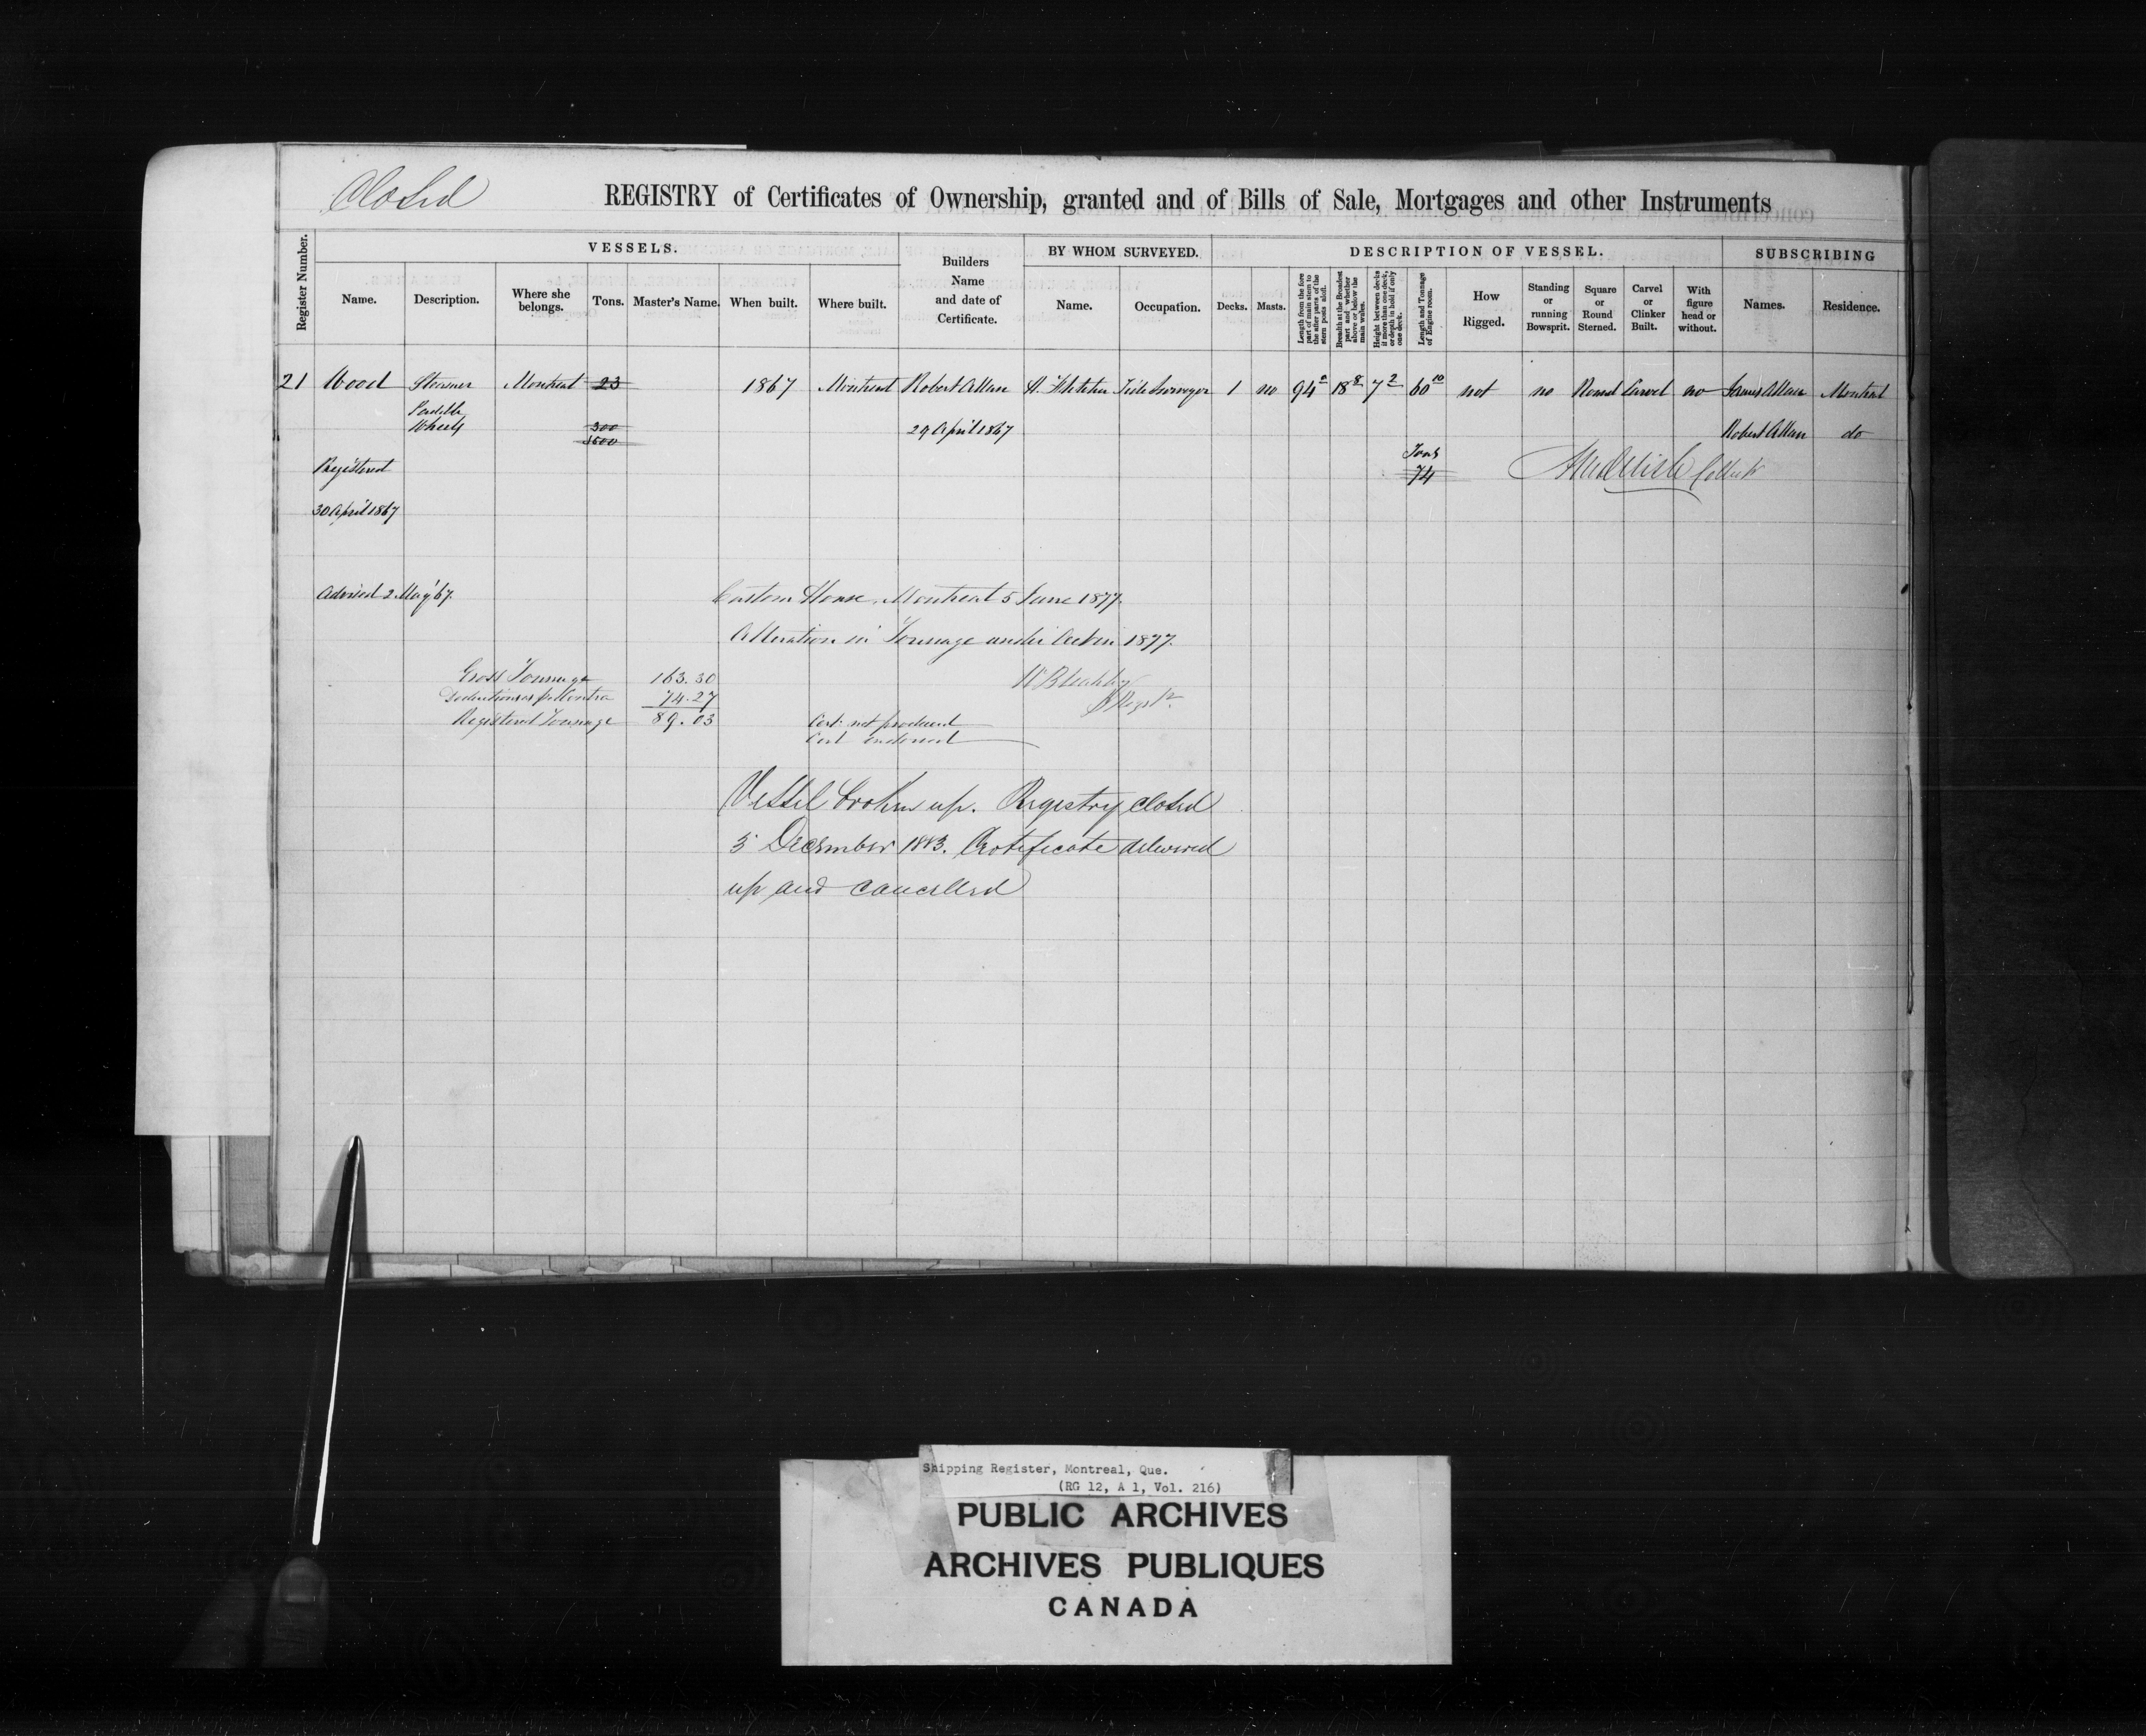 Closed
REGISTRY of Certificates of Ownership, granted and of Bills of Sale, Mortgages and other Instruments
Register Number.
VESSELS.
Name.
Description.
Where she belongs.
Tons.
Master's Name.
When built.
Where built.
Builders Name and date of Certificate.
BY WHOM SURVEYED.
Name.
Occupation.
DESCRIPTION OF VESSEL.
Decks.
Masts.
Length from the fore part of main stem to the after parts of the stern posts aloft.
Breadth at the Broadest part and whether above or below the main wales.
Height between decks if more than one deck, or depth in hold if only one deck.
Length and Tonnage of Engine room.
How Rigged.
Standing or running Bowsprit.
Square or Round Sterned.
Carvel or Clinker Built.
With figure head or without.
SUBSCRIBING
Names.
Residence.
21 Wood Steamer Montreal 23 1867 Montreal Robert Allan Tide Surveyor 1 no 94 18 8 7 2 60 10 not no Round Carvel no James Allan Montreal
Paddle
Wheels 300 29 April 1867 Robert Allan do
1500
Tons
Registered 74
30 April 1867
Advised 2 May '67. Custom House, Montreal 5 June 1877.
Alteration in Tonnage under Act in 1877.
Gross Tonnage 163.30
Deductions as per Contra 74.27
Registered Tonnage 89.03 Cert: not produced
Cert endorsed
Vessel broken up. Registry closed
5 December 1883. Certificate delivered
up and cancelled
Shipping Register, Montreal, Que.
(RG 12, A 1, Vol. 216)
PUBLIC ARCHIVES
ARCHIVES PUBLIQUES
CANADA